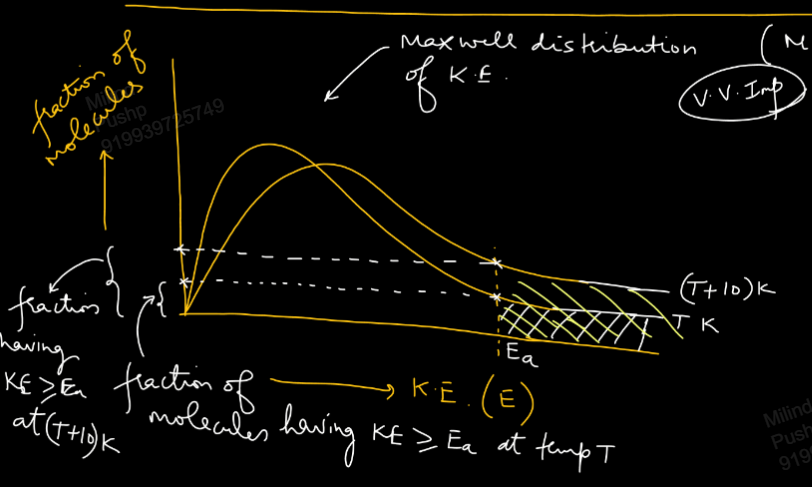 Maxwell distribution
of K.E.
(M
V.V.Imp
fraction of
molecules
Milind
Pushp
919939725749
(T+10)K
T K
Ea
fraction
having
KE ≥ Ea
at (T+10)K
K.E. (E)
fraction of
molecules having KE ≥ Ea at temp T
Milind
Pushp
9199